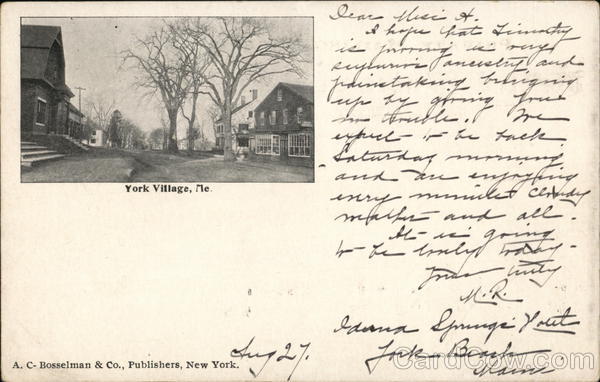 York Village, Me.
A. C. Bosselman & Co., Publishers, New York.
Dear Miss H.
I hope that Timothy
is proving his very
ancestry and
painstaking bringing
up by giving you
no trouble. We
expect to be back
Saturday morning
and are enjoying
every minute cloudy
weather and all.
It is going
to be lovely today -
Yours truly
M. R.
Springs Hotel
York Beach
Maine
Aug 27.
CardCow.com